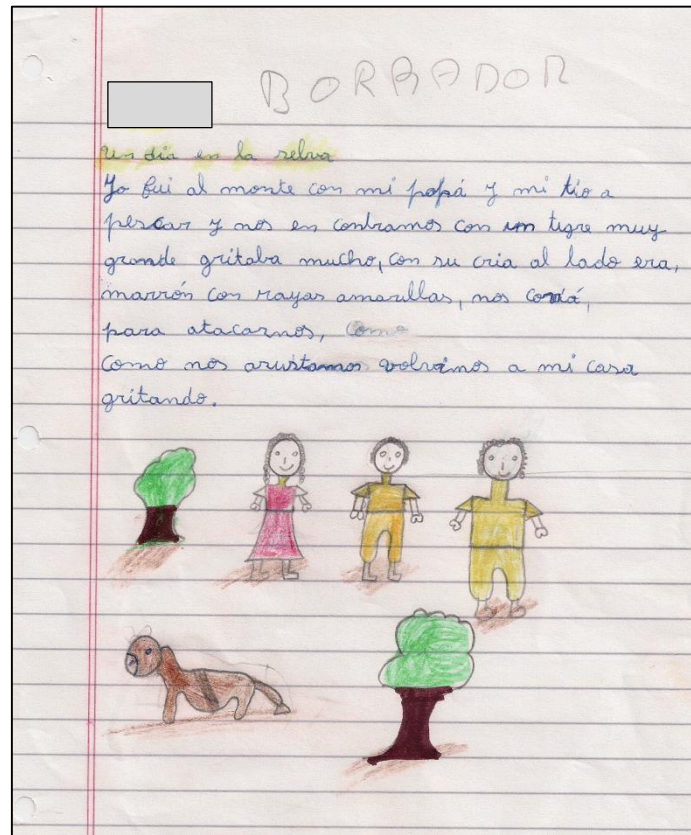 BORRADOR
Un dia en la selva
Yo fui al monte con mi papá y mi tio a
pescar y nos en contramos con un tigre muy
grande gritaba mucho, con su cria al lado era,
marrón con rayas amarillas, nos corriá,
para atacarnos, como
como nos asustamos volvimos a mi casa
gritando.